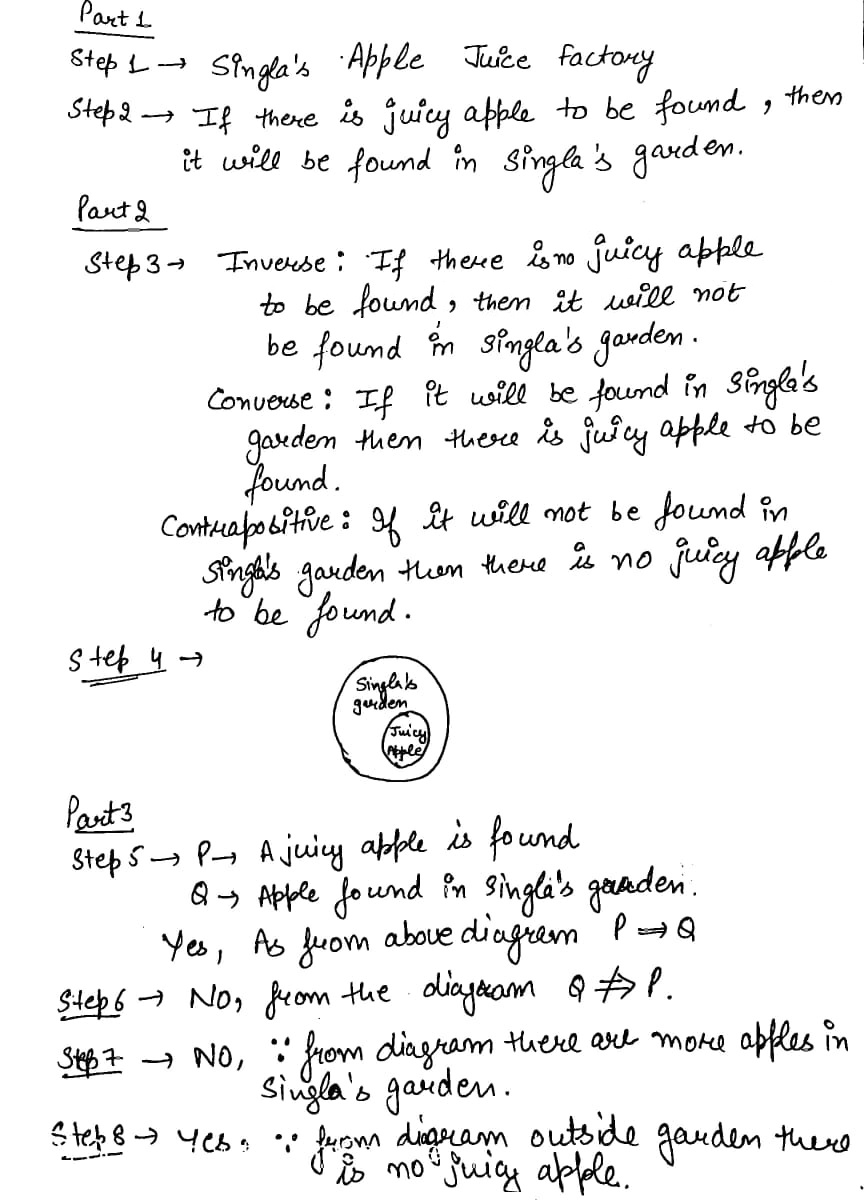 Part 1
Step 1 → Singla's Apple Juice factory
Step 2 → If there is juicy apple to be found, then
it will be found in Singla's garden.
Part 2
Step 3 → Inverse: If there is no juicy apple
to be found, then it will not
be found in singla's garden.
Converse: If it will be found in Singla's
garden then there is juicy apple to be
found.
Contrapositive: If it will not be found in
Singla's garden then there is no juicy apple
to be found.
Step 4 →
Singla's
garden
Juicy
Apple
Part 3
Step 5 → P → A juicy apple is found
Q → Apple found in Singla's garden.
Yes, As from above diagram P ⇒ Q
Step 6 → No, from the diagram Q ⇏ P.
Step 7 → NO, ∵ from diagram there are more apples in
Singla's garden.
Step 8 → Yes. ∵ from diagram outside garden there
is no juicy apple.